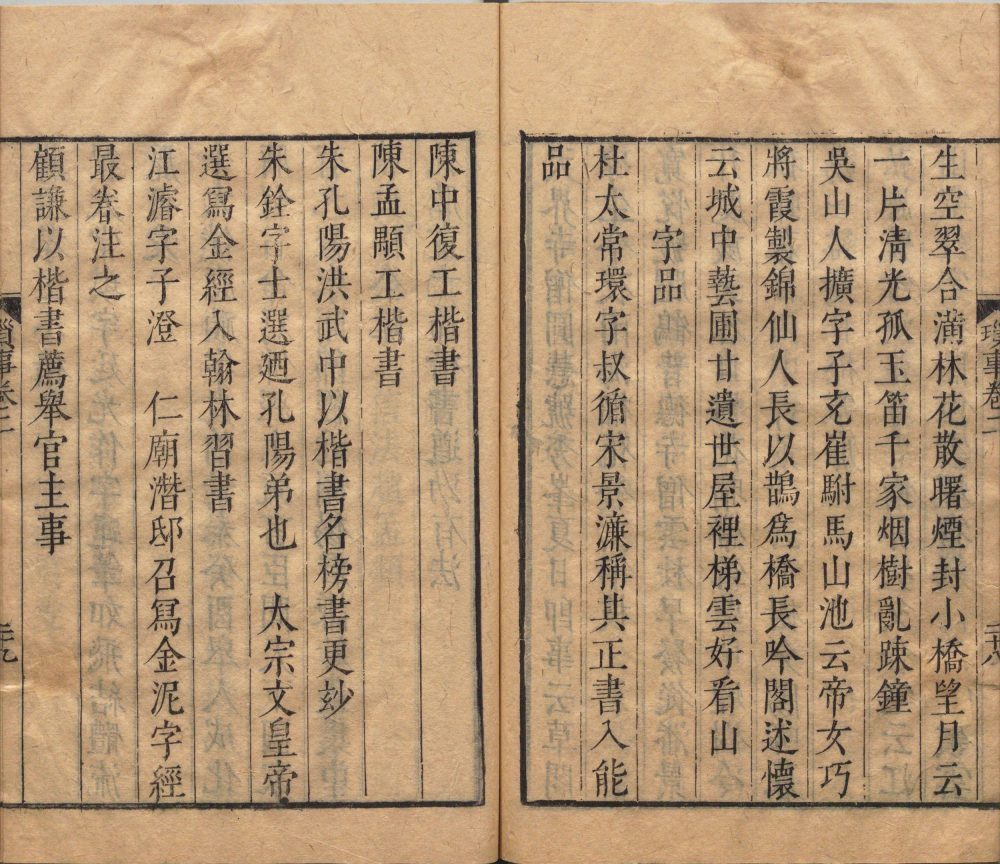 生空翠合滿林花散曙煙封小橋望月云
一片淸光孤玉笛千家烟樹亂踈鐘
吳山人擴字子充崔駙馬山池云帝女巧
將霞製錦仙人長以鵲爲橋長吟閣述懷
云城中藝圃甘遺世屋裡梯雲好看山
字品
杜太常環字叔循宋景濂稱其正書入能
品
陳中復工楷書
陳孟顒工楷書
朱孔陽洪武中以楷書名榜書更玅
朱銓字士選廼孔陽弟也太宗文皇帝
選寫金經入翰林習書
江濬字子澄 仁廟潛邸召寫金泥字經
最卷注之
顧謙以楷書薦舉官主事
瑣事卷二
二十八
瑣事卷二
二十九